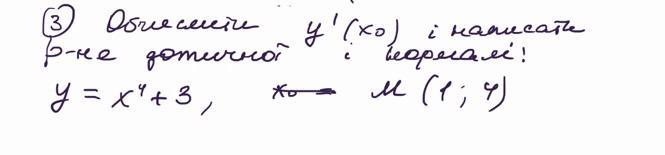 ③ Обчислити y'(x₀) і написати
р-не дотичної і нормалі!
y = x⁴ + 3, M (1; 4)